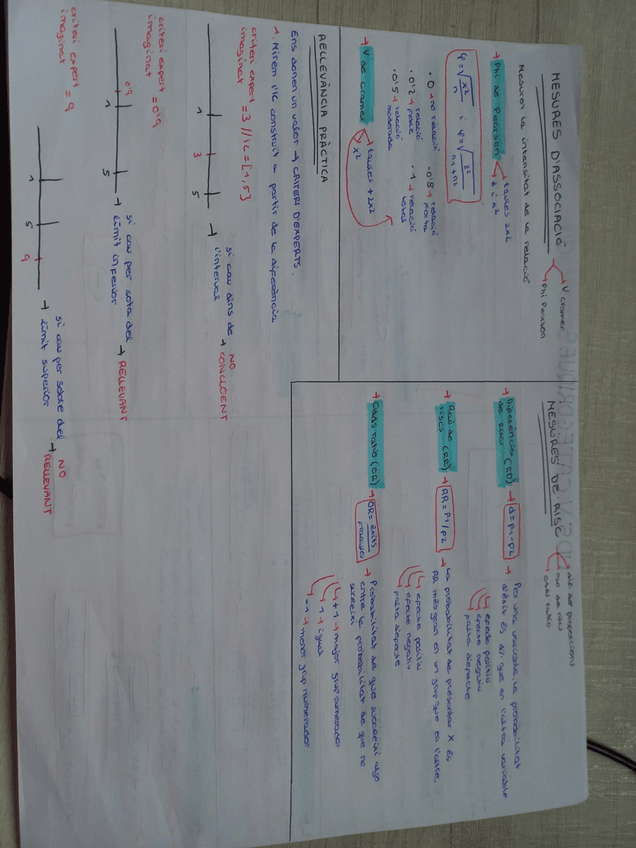 MESURES D'ASSOCIACIÓ
V Cramer
Phi Pearson
Mesuren la intensitat de la relació
→ Phi de Pearson
taules 2x2
φ = √x²/n i φ = √x²/n1+n2
· 0 → no relació
· 0'2 → relació
· 0'5 → relació moderada
· 0'8 → relació forta
· 1 → relació total
→ V de Cramer
taules + 2x2
x²
RELLEVÀNCIA PRÀCTICA
Ens donen un valor → CRITERI D'EXPERTS.
1. Mirem l'IC construït a partir de la diferència
criteri expert imaginat = 3 // IC = [1,5]
1 3 5
→ si cau dins de l'interval → NO CONCLOENT
criteri expert imaginat = 0'9
0'9 1 5
→ si cau per sota del límit inferior → RELLEVANT
criteri expert imaginat = 9
1 5 9
→ si cau per sobre del límit superior → NO RELLEVANT
MESURES DE RISC
dif. de proporcions
raó de risc
odds ratio
→ Diferència de risc (RD) → d = p1 - p2 → Per una variable, la probabilitat
d'èxit és d. que en l'altra variable
efecte positiu
efecte negatiu
falta d'efecte
→ Raó de riscos (RR) → RR = P1/P2 → La probabilitat de presentar X és
RR més gran en un grup que en l'altre.
efecte positiu
efecte negatiu
falta d'efecte
→ Odds ratio (OR) → OR = èxits/fracassos → Probabilitat de que succeeixi algo
entre la probabilitat de que no
succeeixi
+1 → major grup numerador
1 → igual
-1 → menor grup numerador